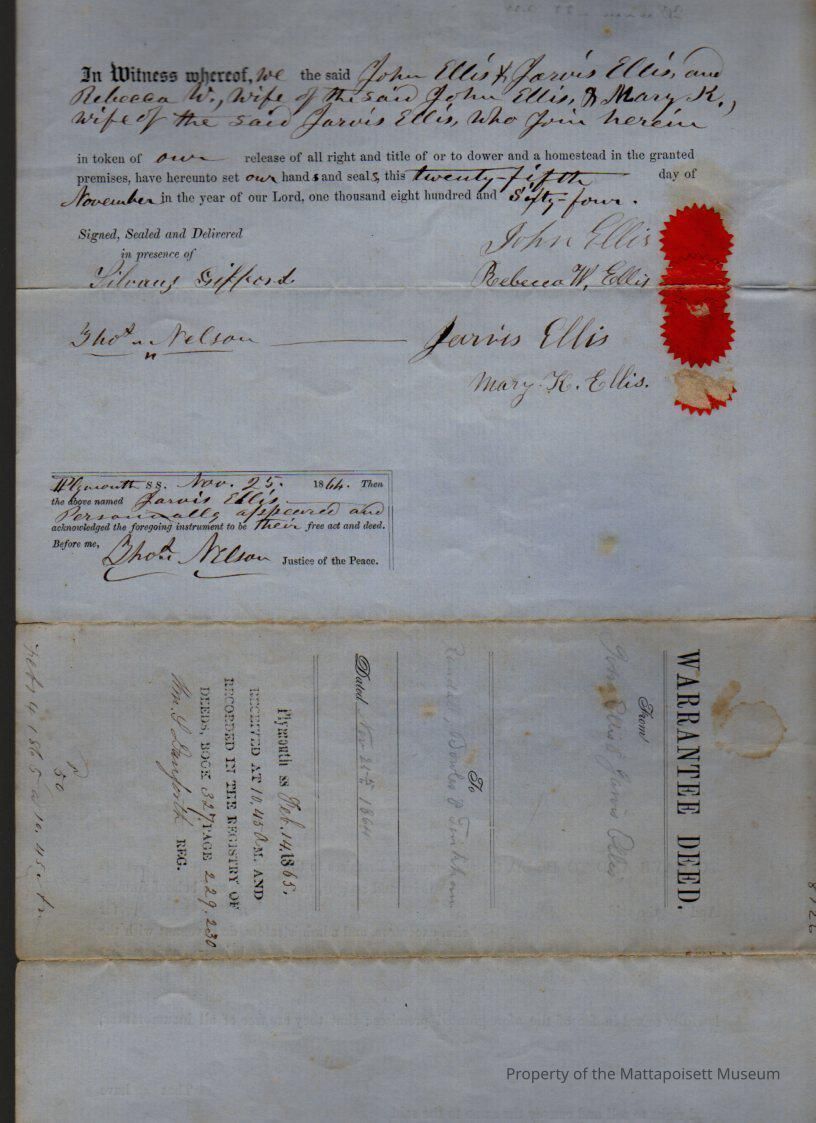 In Witness whereof, we the said John Ellis & Jarvis Ellis, and
Rebecca W., wife of the said John Ellis, & Mary K.,
wife of the said Jarvis Ellis, who join herein
in token of our release of all right and title of or to dower and a homestead in the granted
premises, have hereunto set our hands and seals, this twenty-fifth day of
November in the year of our Lord, one thousand eight hundred and Sixty-four.
Signed, Sealed and Delivered
in presence of
John Ellis
Silvanus Gifford
Rebecca W. Ellis
Thos. Nelson
Jarvis Ellis
Mary K. Ellis.
Plymouth ss. Nov. 25. 1864. Then
the above named Jarvis Ellis
Personally appeared and
acknowledged the foregoing instrument to be their free act and deed.
Before me,
Thos. Nelson Justice of the Peace.
WARRANTEE DEED.
From
John Ellis & Jarvis Ellis
To
Randall, Bowles & Tinkham
Dated Nov 25th 1864
Plymouth ss Feb. 14, 1865.
RECEIVED AT 10, 45 M. AND
RECORDED IN THE REGISTRY OF
DEEDS, BOOK 327 PAGE 229.230
Wm. S. Danforth REG.
50
8726
Property of the Mattapoisett Museum